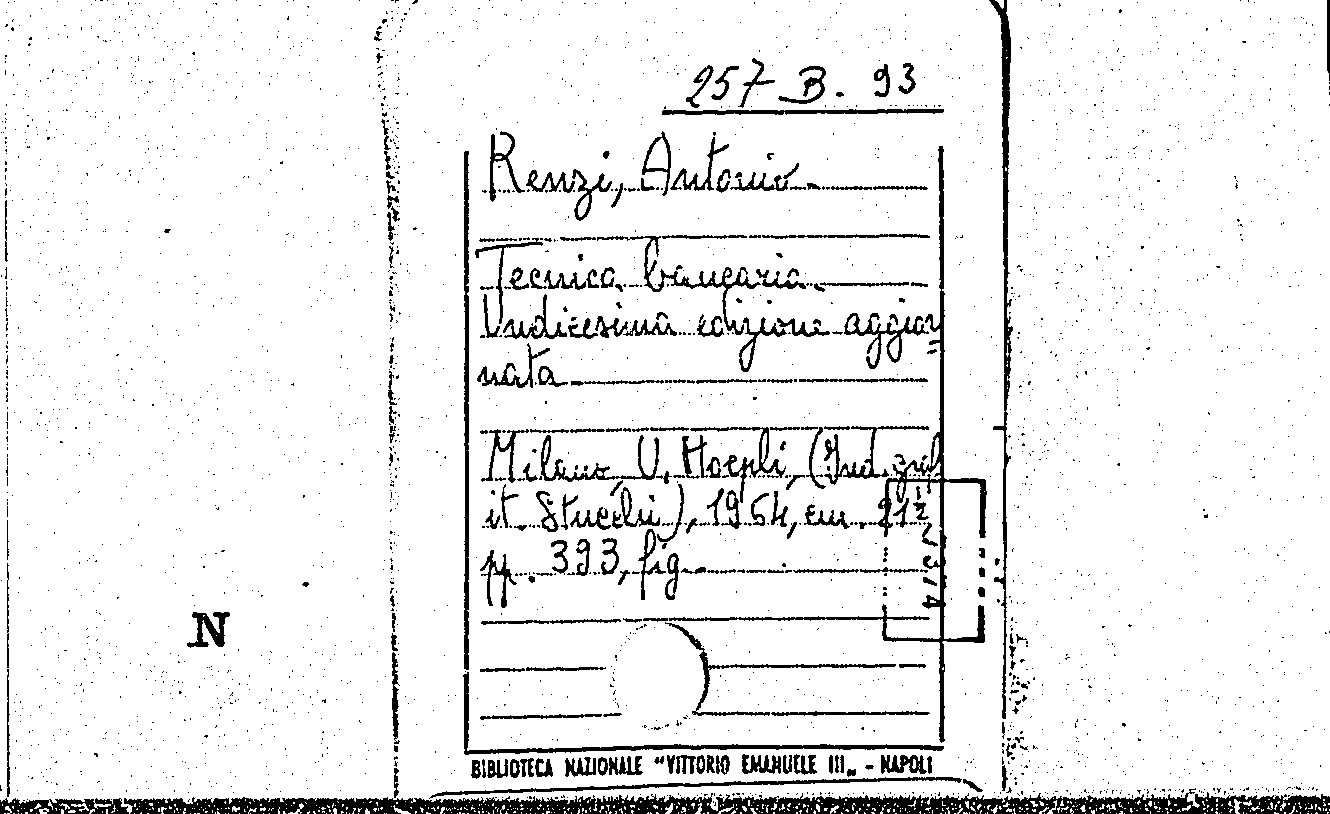 257 B. 93
Renzi, Antonio.
Tecnica bancaria.
Undicesima edizione aggior
nata
Milano, U. Hoepli, (Ind. graf.
it. Stucchi), 1964, cm. 21½
pp. 393, fig.
N
BIBLIOTECA NAZIONALE "VITTORIO EMANUELE III„ - NAPOLI